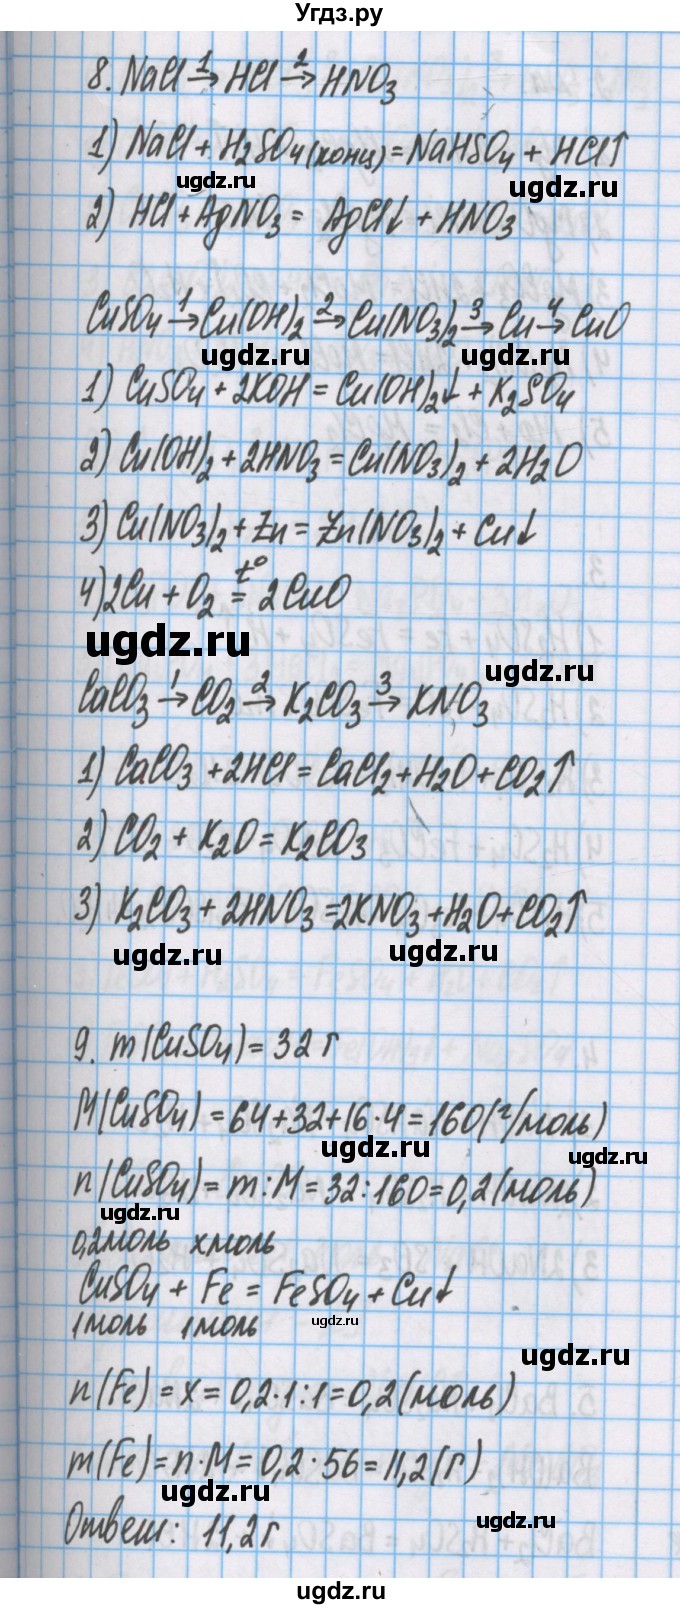 Угдз.ру
8. NaCl →¹ HCl →² HNO₃
1) NaCl + H₂SO₄(конц) = NaHSO₄ + HCl↑
ugdz.ru
ugdz.ru
2) HCl + AgNO₃ = AgCl↓ + HNO₃
ugdz.ru
CuSO₄ →¹ Cu(OH)₂ →² Cu(NO₃)₂ →³ Cu →⁴ CuO
ugdz.ru
ugdz.ru
1) CuSO₄ + 2KOH = Cu(OH)₂↓ + K₂SO₄
2) Cu(OH)₂ + 2HNO₃ = Cu(NO₃)₂ + 2H₂O
3) Cu(NO₃)₂ + Zn = Zn(NO₃)₂ + Cu↓
4) 2Cu + O₂ =ᵗ° 2CuO
ugdz.ru
ugdz.ru
CaCO₃ →¹ CO₂ →² K₂CO₃ →³ KNO₃
1) CaCO₃ + 2HCl = CaCl₂ + H₂O + CO₂↑
2) CO₂ + K₂O = K₂CO₃
3) K₂CO₃ + 2HNO₃ = 2KNO₃ + H₂O + CO₂↑
ugdz.ru
ugdz.ru
9. m(CuSO₄) = 32 г
M(CuSO₄) = 64+32+16·4 = 160(г/моль)
ugdz.ru
ugdz.ru
n(CuSO₄) = m:M = 32:160 = 0,2(моль)
ugdz.ru
0,2моль хмоль
CuSO₄ + Fe = FeSO₄ + Cu↓
1моль 1моль
ugdz.ru
ugdz.ru
n(Fe) = x = 0,2·1:1 = 0,2(моль)
m(Fe) = n·M = 0,2·56 = 11,2(г)
ugdz.ru
Ответ: 11,2г
ugdz.ru
ugdz.ru